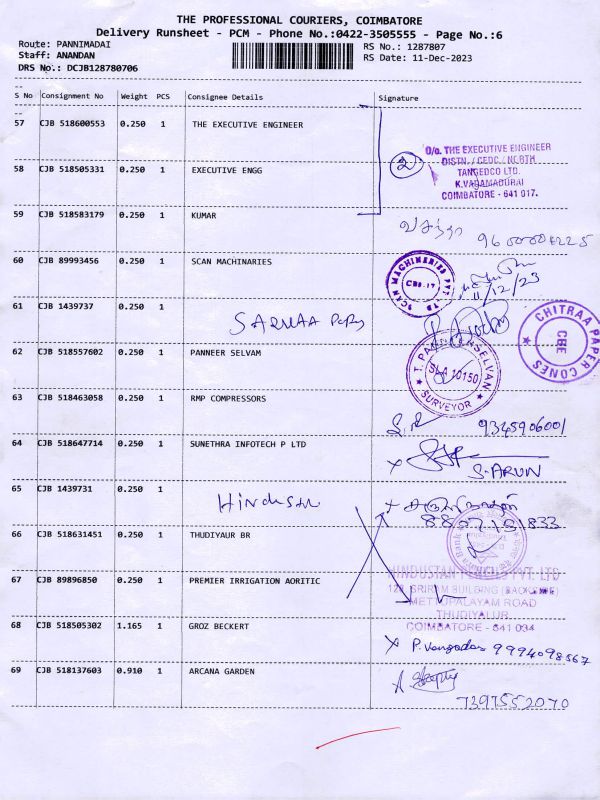 THE PROFESSIONAL COURIERS, COIMBATORE
Delivery Runsheet - PCM - Phone No.:0422-3505555 - Page No.:6
Route: PANNIMADAI
RS No.: 1287807
Staff: ANANDAN
RS Date: 11-Dec-2023
DRS No.: DCJB128780706
S No Consignment No Weight PCS Consignee Details Signature
57 CJB 518600553 0.250 1 THE EXECUTIVE ENGINEER
2
O/o. THE EXECUTIVE ENGINEER
DISTN. / CEDC / NORTH
TANGEDCO LTD.
K.VADAMADURAI
COIMBATORE - 641 017.
58 CJB 518505331 0.250 1 EXECUTIVE ENGG
59 CJB 518583179 0.250 1 KUMAR
வசந்தா
60 CJB 89993456 0.250 1 SCAN MACHINARIES
SCAN MACHINERIES PVT LTD
CBE-17
11/12/23
61 CJB 1439737 0.250 1
CHITRAA PAPER CONES
CBE
62 CJB 518557602 0.250 1 PANNEER SELVAM
T. PANNEERSELVAN
SLA 10150
SURVEYOR
63 CJB 518463058 0.250 1 RMP COMPRESSORS
9345906001
64 CJB 518647714 0.250 1 SUNETHRA INFOTECH P LTD
S-ARUN
65 CJB 1439731 0.250 1
8807151833
66 CJB 518631451 0.250 1 THUDIYAUR BR
HINDUSTAN PENCILS PVT. LTD
SRIRAM BUILDING (BACKSIDE)
67 CJB 89896850 0.250 1 PREMIER IRRIGATION AORITIC
METTUPALAYAM ROAD
THUDIYALUR
COIMBATORE - 641 034
68 CJB 518505302 1.165 1 GROZ BECKERT
X 9994098567
69 CJB 518137603 0.910 1 ARCANA GARDEN
7397552070